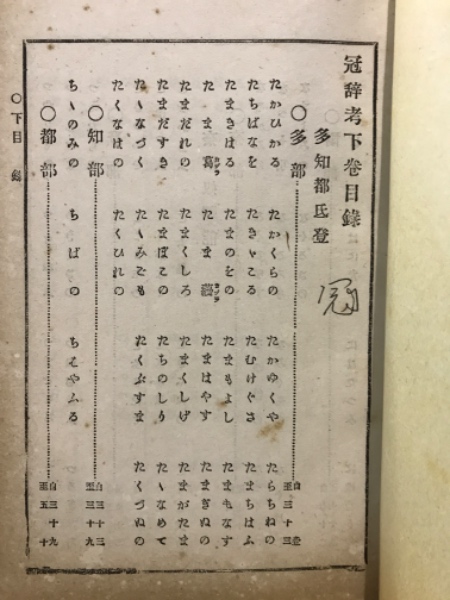 冠辞考下卷目錄
多知都氐登
冠
〇多部 自 三十三
たかひかる たかくらの たかゆくや たらちねの
たちばなを たきゝこる たむけぐさ たまちはふ
たまきはる たまのをの たまもよし たまもなす
たま葛 カヅラ たま蘰 カヅラ たまはやす たまぎぬの
たまだれの たまくしろ たまくしげ たまがたま
たまだすき たまぼこの たちのしり たゝなめて
たゝなづく たゝみごも たくぶすま たくづぬの
たくなはの たくひれの
〇知部 自三十三 至三十九
ちゝのみの ちばの ちはやふる
〇都部 自三十九 至五十
〇下目錄